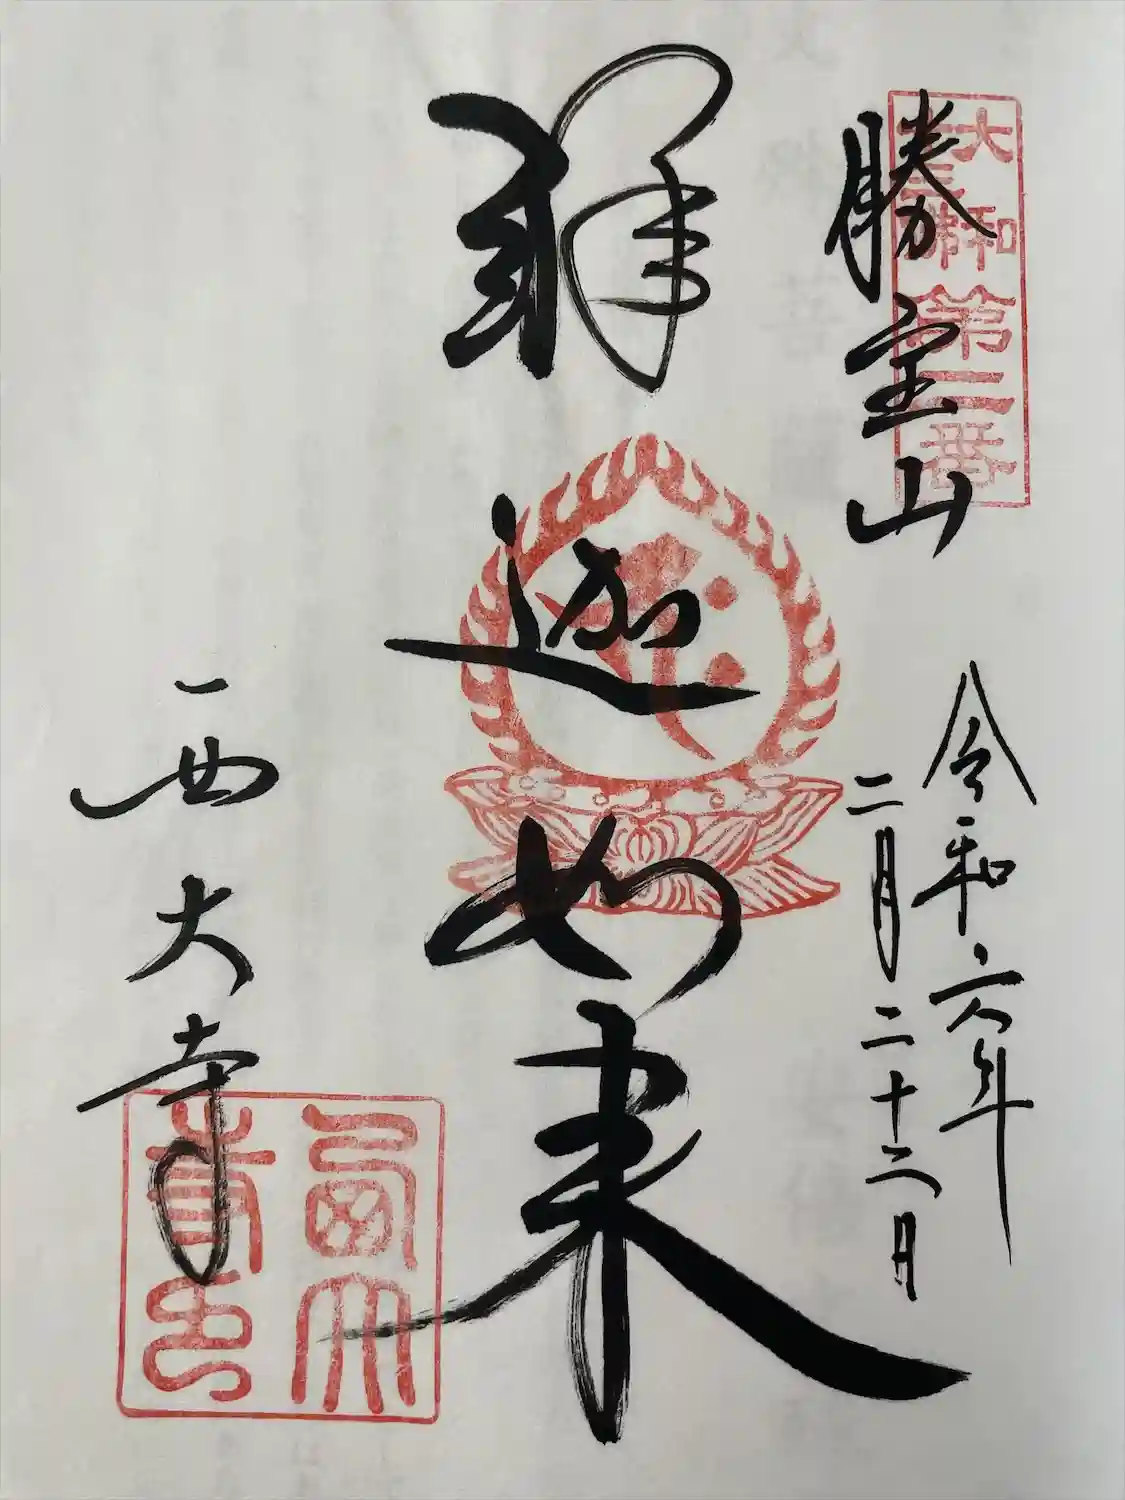 大和
十三佛
第二番
勝宝山
令和六年
二月二十二日
釋迦如来
西大寺
西大
寺印